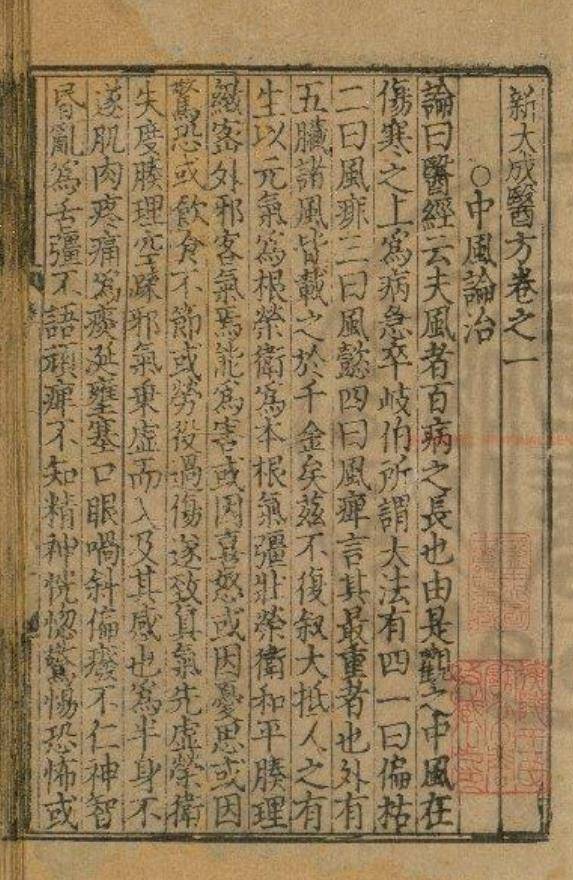 新大成醫方卷之一
○中風論治
論曰醫經云夫風者百病之長也由是觀之中風在
傷寒之上爲病急卒岐伯所謂大法有四一曰偏枯
二曰風痱三曰風懿四曰風痺言其最重者也外有
五臟諸風皆載之於千金矣茲不復敍大抵人之有
生以元氣爲根榮衛爲本根氣彊壯榮衛和平腠理
緻密外邪客氣焉能爲害或因喜怒或因憂思或因
驚恐或飲食不節或勞役過傷遂致眞氣先虛榮衛
失度腠理空疎邪氣乗虛而入及其感也爲半身不
遂肌肉疼痛爲痰涎壅塞口眼喎斜偏癈不仁神智
昏亂爲舌彊不語頑痺不知精神恍惚驚惕恐怖或